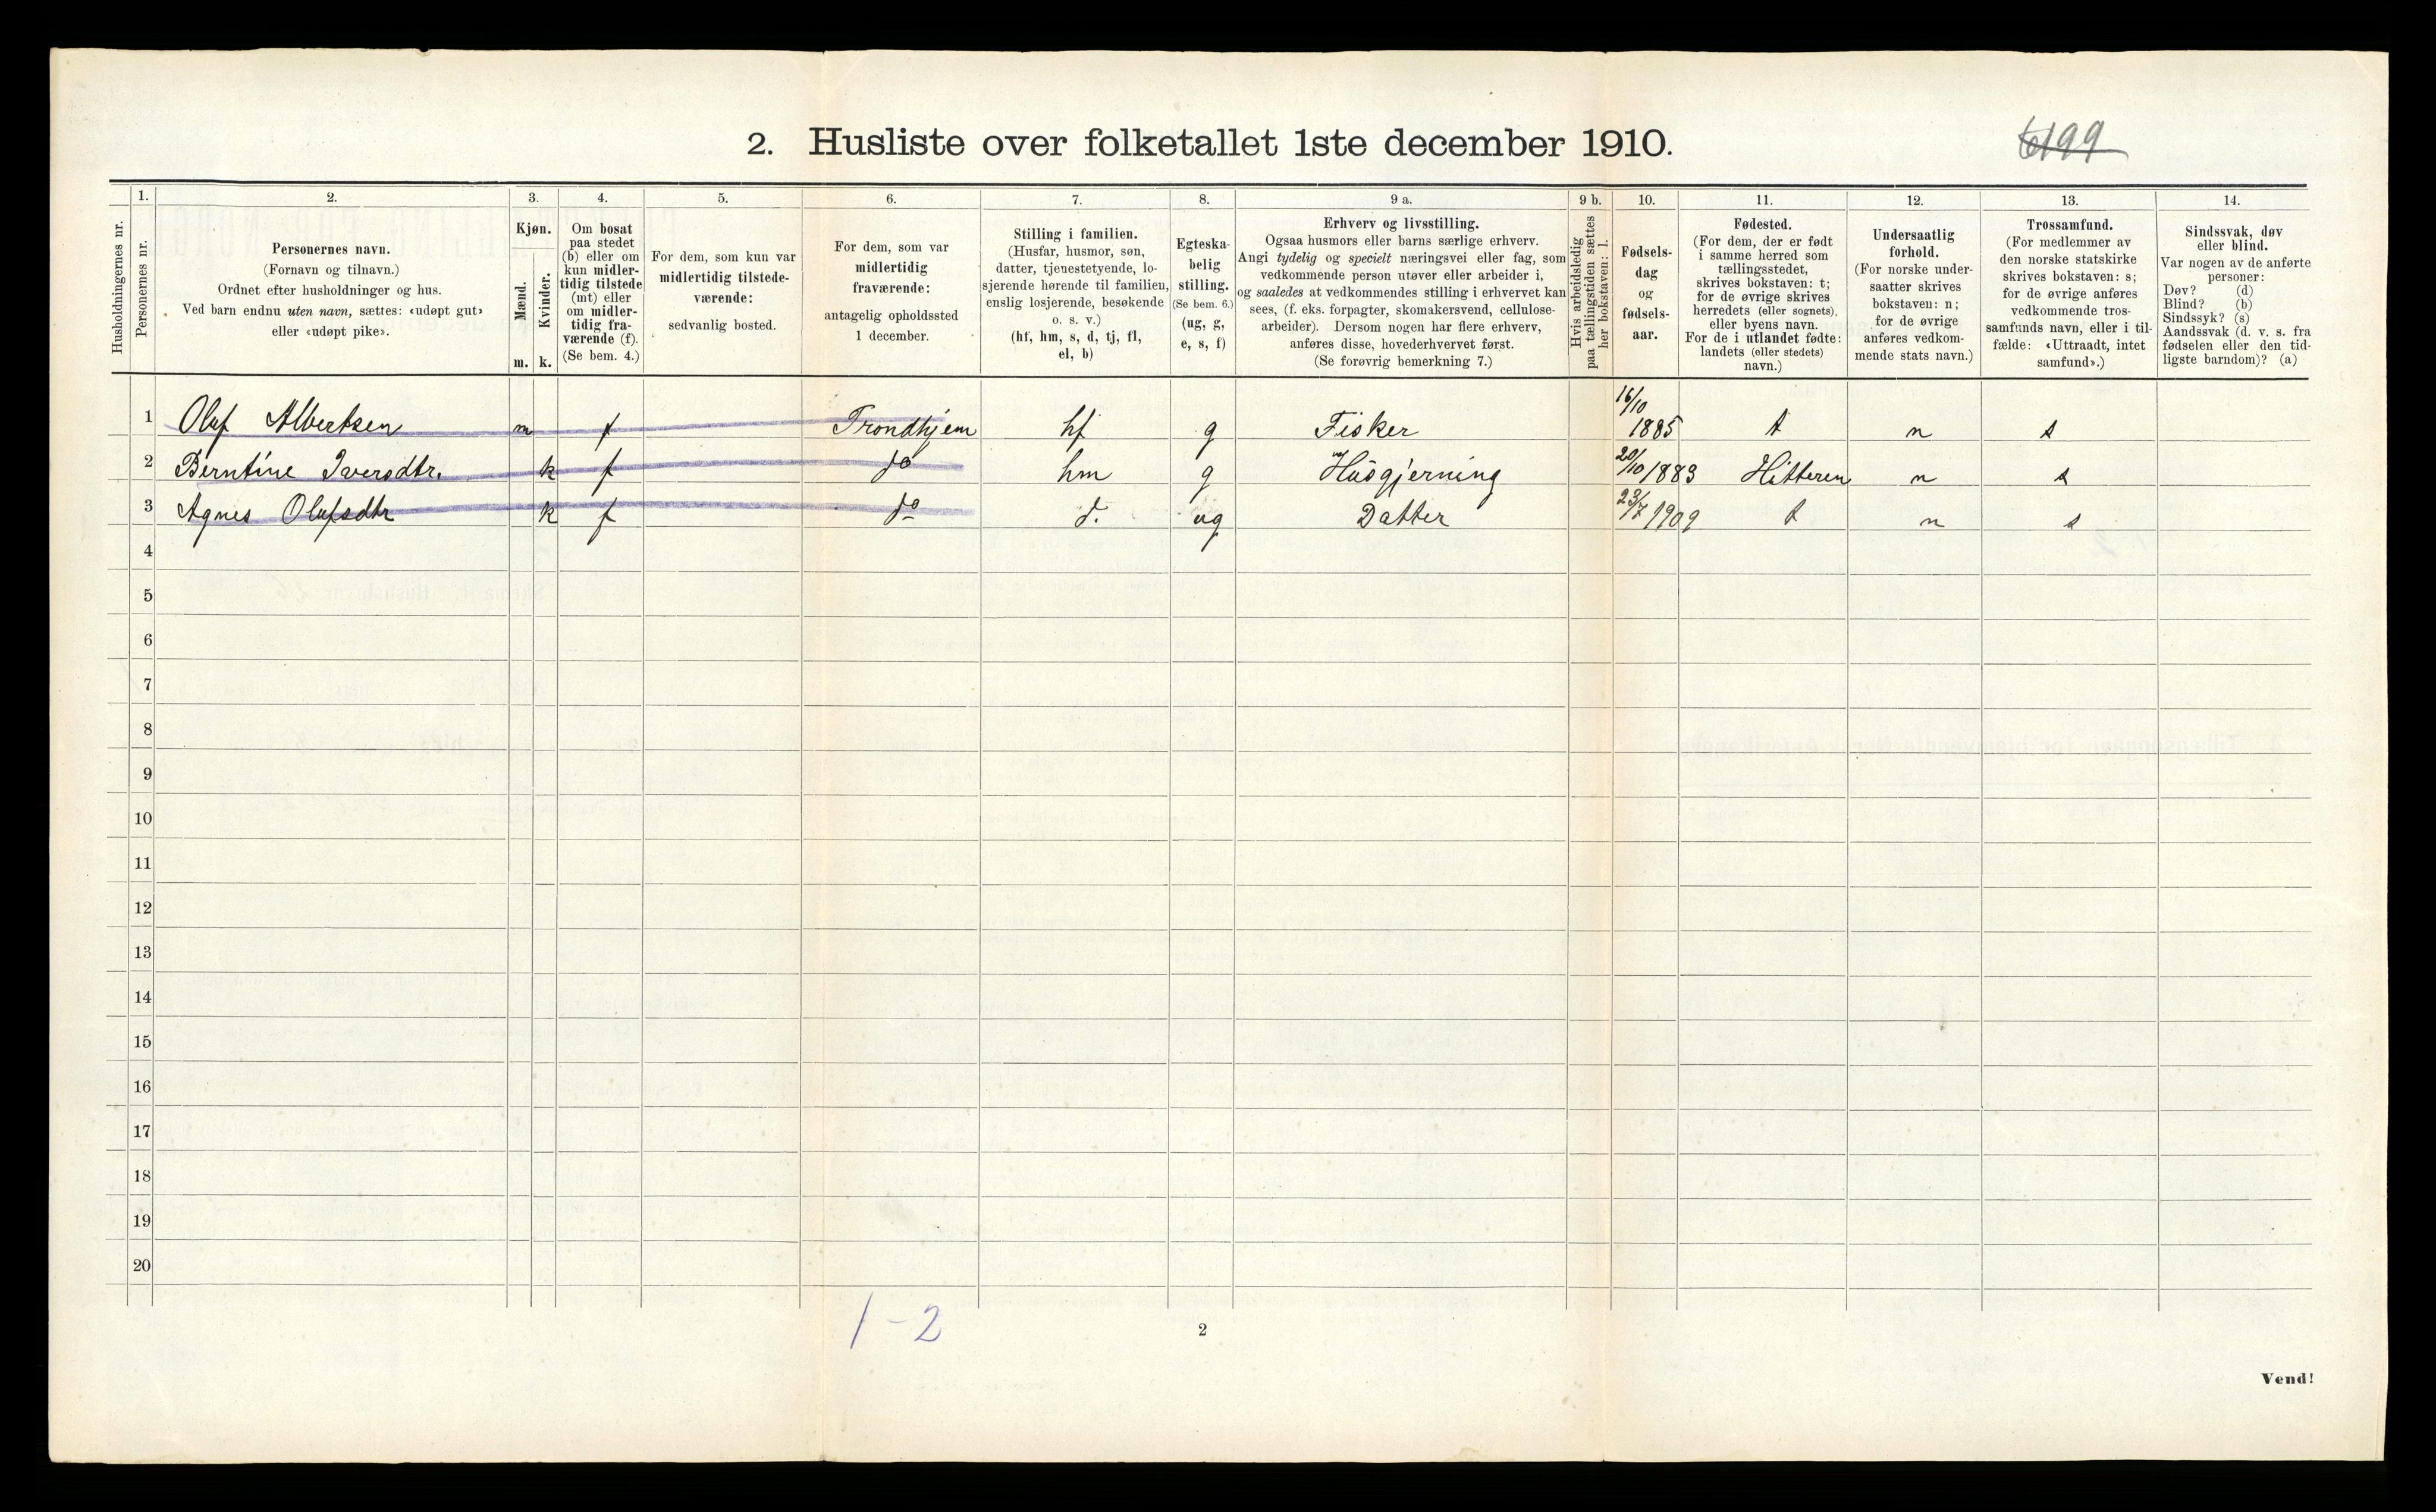 2. Husliste over folketallet 1ste december 1910.
6199
Husholdningernes nr.
1.
Personernes nr.
2.
Personernes navn.
(Fornavn og tilnavn.)
Ordnet efter husholdninger og hus.
Ved barn endnu uten navn, sættes: «udøpt gut»
eller «udøpt pike».
3.
Kjøn.
Mænd.
m.
Kvinder.
k.
4.
Om bosat
paa stedet
(b) eller om
kun midler-
tidig tilstede
(mt) eller
om midler-
tidig fra-
værende (f).
(Se bem. 4.)
5.
For dem, som kun var
midlertidig tilstede-
værende:
sedvanlig bosted.
6.
For dem, som var
midlertidig
fraværende:
antagelig opholdssted
1 december.
7.
Stilling i familien.
(Husfar, husmor, søn,
datter, tjenestetyende, lo-
sjerende hørende til familien,
enslig losjerende, besøkende
o. s. v.)
(hf, hm, s, d, tj, fl,
el, b)
8.
Egteska-
belig
stilling.
(Se bem. 6.)
(ug, g,
e, s, f)
9 a.
Erhverv og livsstilling.
Ogsaa husmors eller barns særlige erhverv.
Angi tydelig og specielt næringsvei eller fag, som
vedkommende person utøver eller arbeider i,
og saaledes at vedkommendes stilling i erhvervet kan
sees, (f. eks. forpagter, skomakersvend, cellulose-
arbeider). Dersom nogen har flere erhverv,
anføres disse, hovederhvervet først.
(Se forøvrig bemerkning 7.)
9 b.
Hvis arbeidsledig
paa tællingstiden sættes
her bokstaven: l.
10.
Fødsels-
dag
og
fødsels-
aar.
11.
Fødested.
(For dem, der er født
i samme herred som
tællingsstedet,
skrives bokstaven: t;
for de øvrige skrives
herredets (eller sognets)
eller byens navn.
For de i utlandet fødte:
landets (eller stedets)
navn.)
12.
Undersaatlig
forhold.
(For norske under-
saatter skrives
bokstaven: n;
for de øvrige
anføres vedkom-
mende stats navn.)
13.
Trossamfund.
(For medlemmer av
den norske statskirke
skrives bokstaven: s;
for de øvrige anføres
vedkommende tros-
samfunds navn, eller i til-
fælde: «Uttraadt, intet
samfund».)
14.
Sindssvak, døv
eller blind.
Var nogen av de anførte
personer:
Døv? (d)
Blind? (b)
Sindssyk? (s)
Aandssvak (d. v. s. fra
fødselen eller den tid-
ligste barndom)? (a)
1 Oluf Albertsen m f Trondhjem hf g Fisker 16/10 1885 t n s
2 Berntine Iversdtr. k f do hm g Husgjerning 20/10 1883 Hitteren n s
3 Agnes Olufsdtr k f do d. ug Datter 23/7 1909 t n s
4
5
6
7
8
9
10
11
12
13
14
15
16
17
18
19
20
1-2
2
Vend!